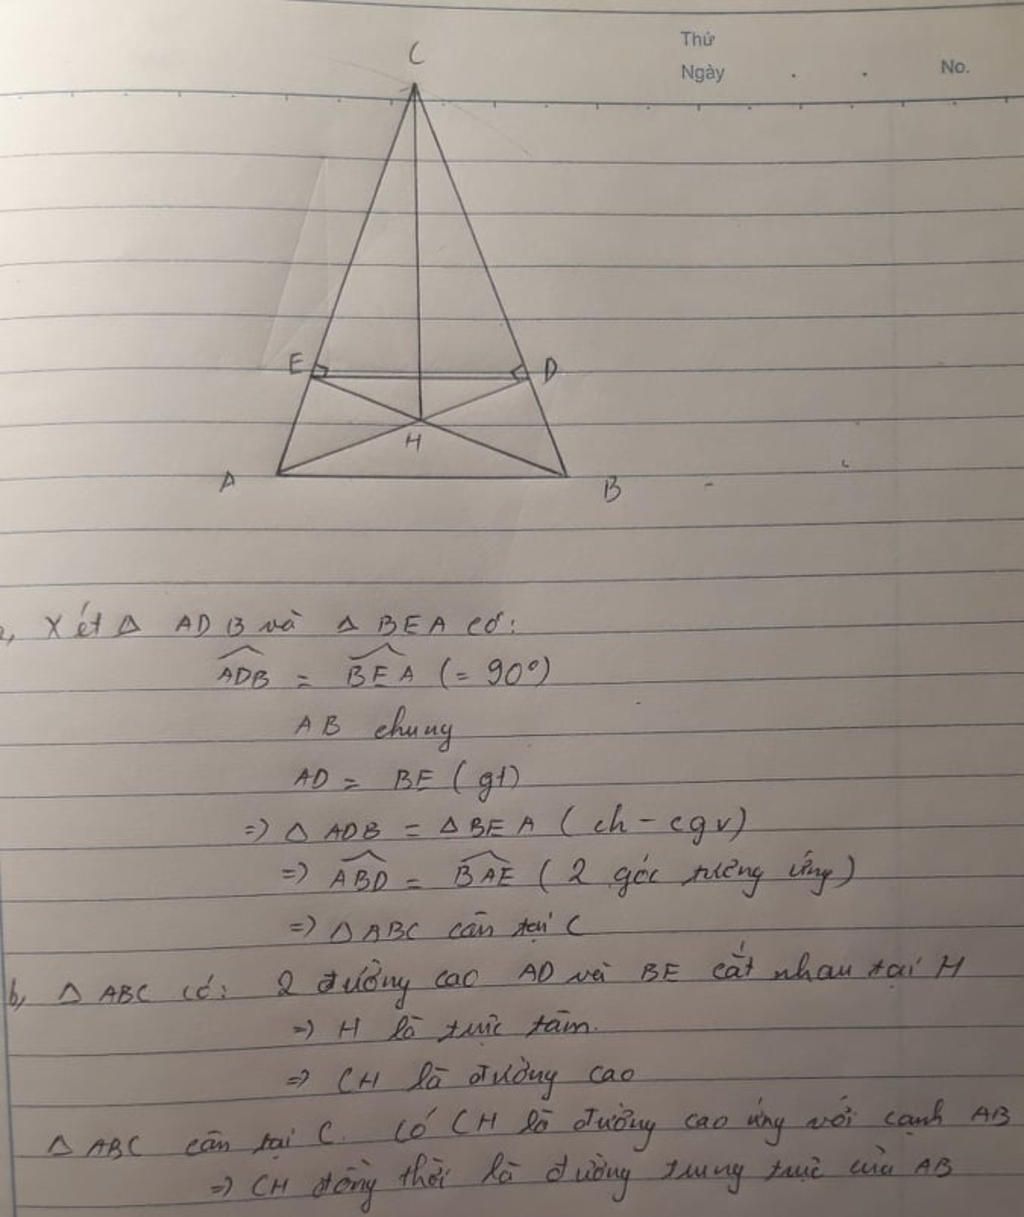 Thứ
Ngày . . No.
C
E D
H
A B
a, Xét Δ ADB và Δ BEA có:
\widehat{ADB} = \widehat{BEA} (= 90°)
AB chung
AD = BE (gt)
=> Δ ADB = Δ BEA (ch - cgv)
=> \widehat{ABD} = \widehat{BAE} (2 góc tương ứng)
=> Δ ABC cân tại C
b, Δ ABC có: 2 đường cao AD và BE cắt nhau tại H
=> H là trực tâm.
=> CH là đường cao
Δ ABC cân tại C. Có CH là đường cao ứng với cạnh AB
=> CH đồng thời là đường trung trực của AB